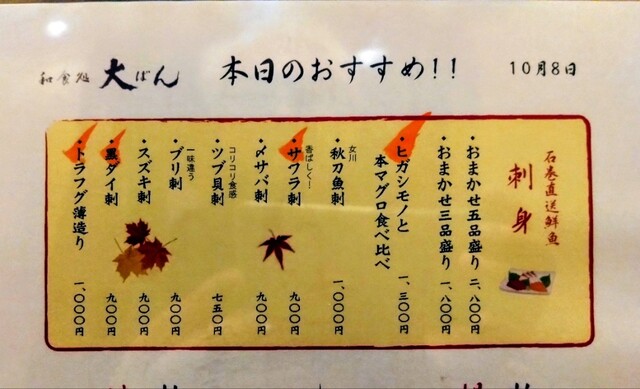 和食処 大ばん
本日のおすすめ!!
10月8日
石巻直送鮮魚
刺身
・おまかせ五品盛り 二、八〇〇円
・おまかせ三品盛り 一、八〇〇円
・ヒガシモノと
本マグロ食べ比べ 一、三〇〇円
女川
・秋刀魚刺 一、〇〇〇円
香ばしく!
・サワラ刺 九〇〇円
・〆サバ刺 九〇〇円
コリコリ食感
・ツブ貝刺 七五〇円
一味違う
・ブリ刺 九〇〇円
・スズキ刺 九〇〇円
・黒ダイ刺 九〇〇円
・トラフグ薄造り 一、〇〇〇円